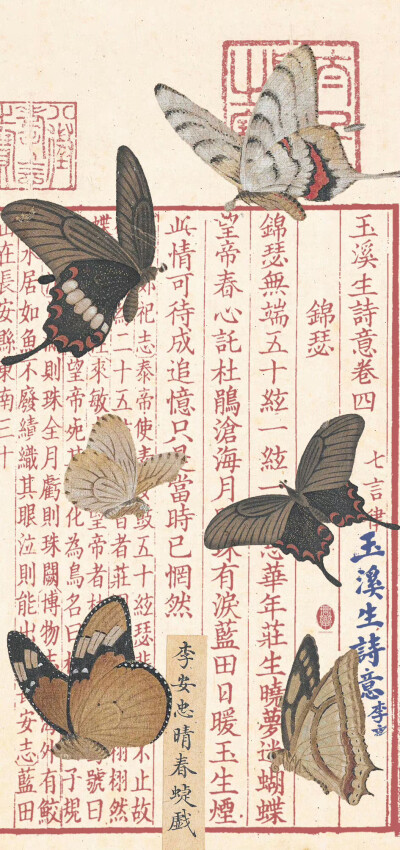 玉溪生詩意卷四
七言律
玉溪生詩意
李
錦瑟
錦瑟無端五十絃一絃一思華年莊生曉夢迷蝴蝶
望帝春心託杜鵑滄海月珠有淚藍田日暖玉生煙
此情可待成追憶只是當時已惘然
祀志泰帝使素鼓五十絃瑟悲不止故
二十五者莊栩然
蝶來敏皇帝者杜號曰
望帝死其化為鳥名曰子規
則珠全月虧則珠闕博物海外有鮫
水居如魚不廢績織其眼泣則能出長安志藍田
山在長安縣東南三十
李安忠晴春蝶戲